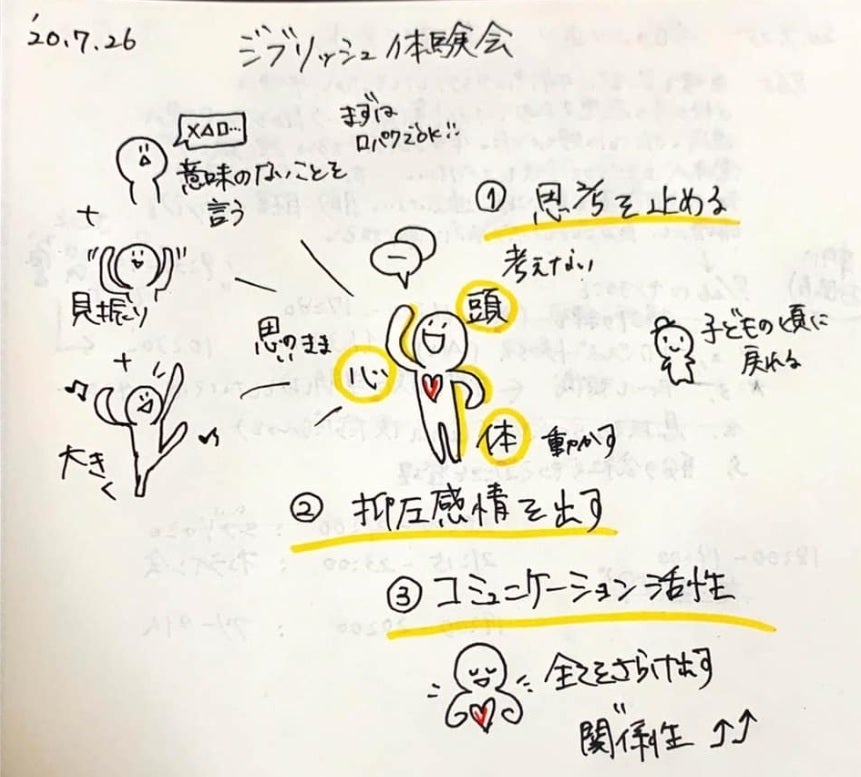 '20.7.26
ジブリッシュ体験会
まずは
口パクでOK!!
×△□…
意味のないことを
言う
+
見振り
+
大きく
① 思考を止める
考えない
頭
思いのまま
心
体 動かす
子どもの頃に
戻れる
② 抑圧感情を出す
③ コミュニケーション活性
全てをさらけ出す
関係性 ↑↑